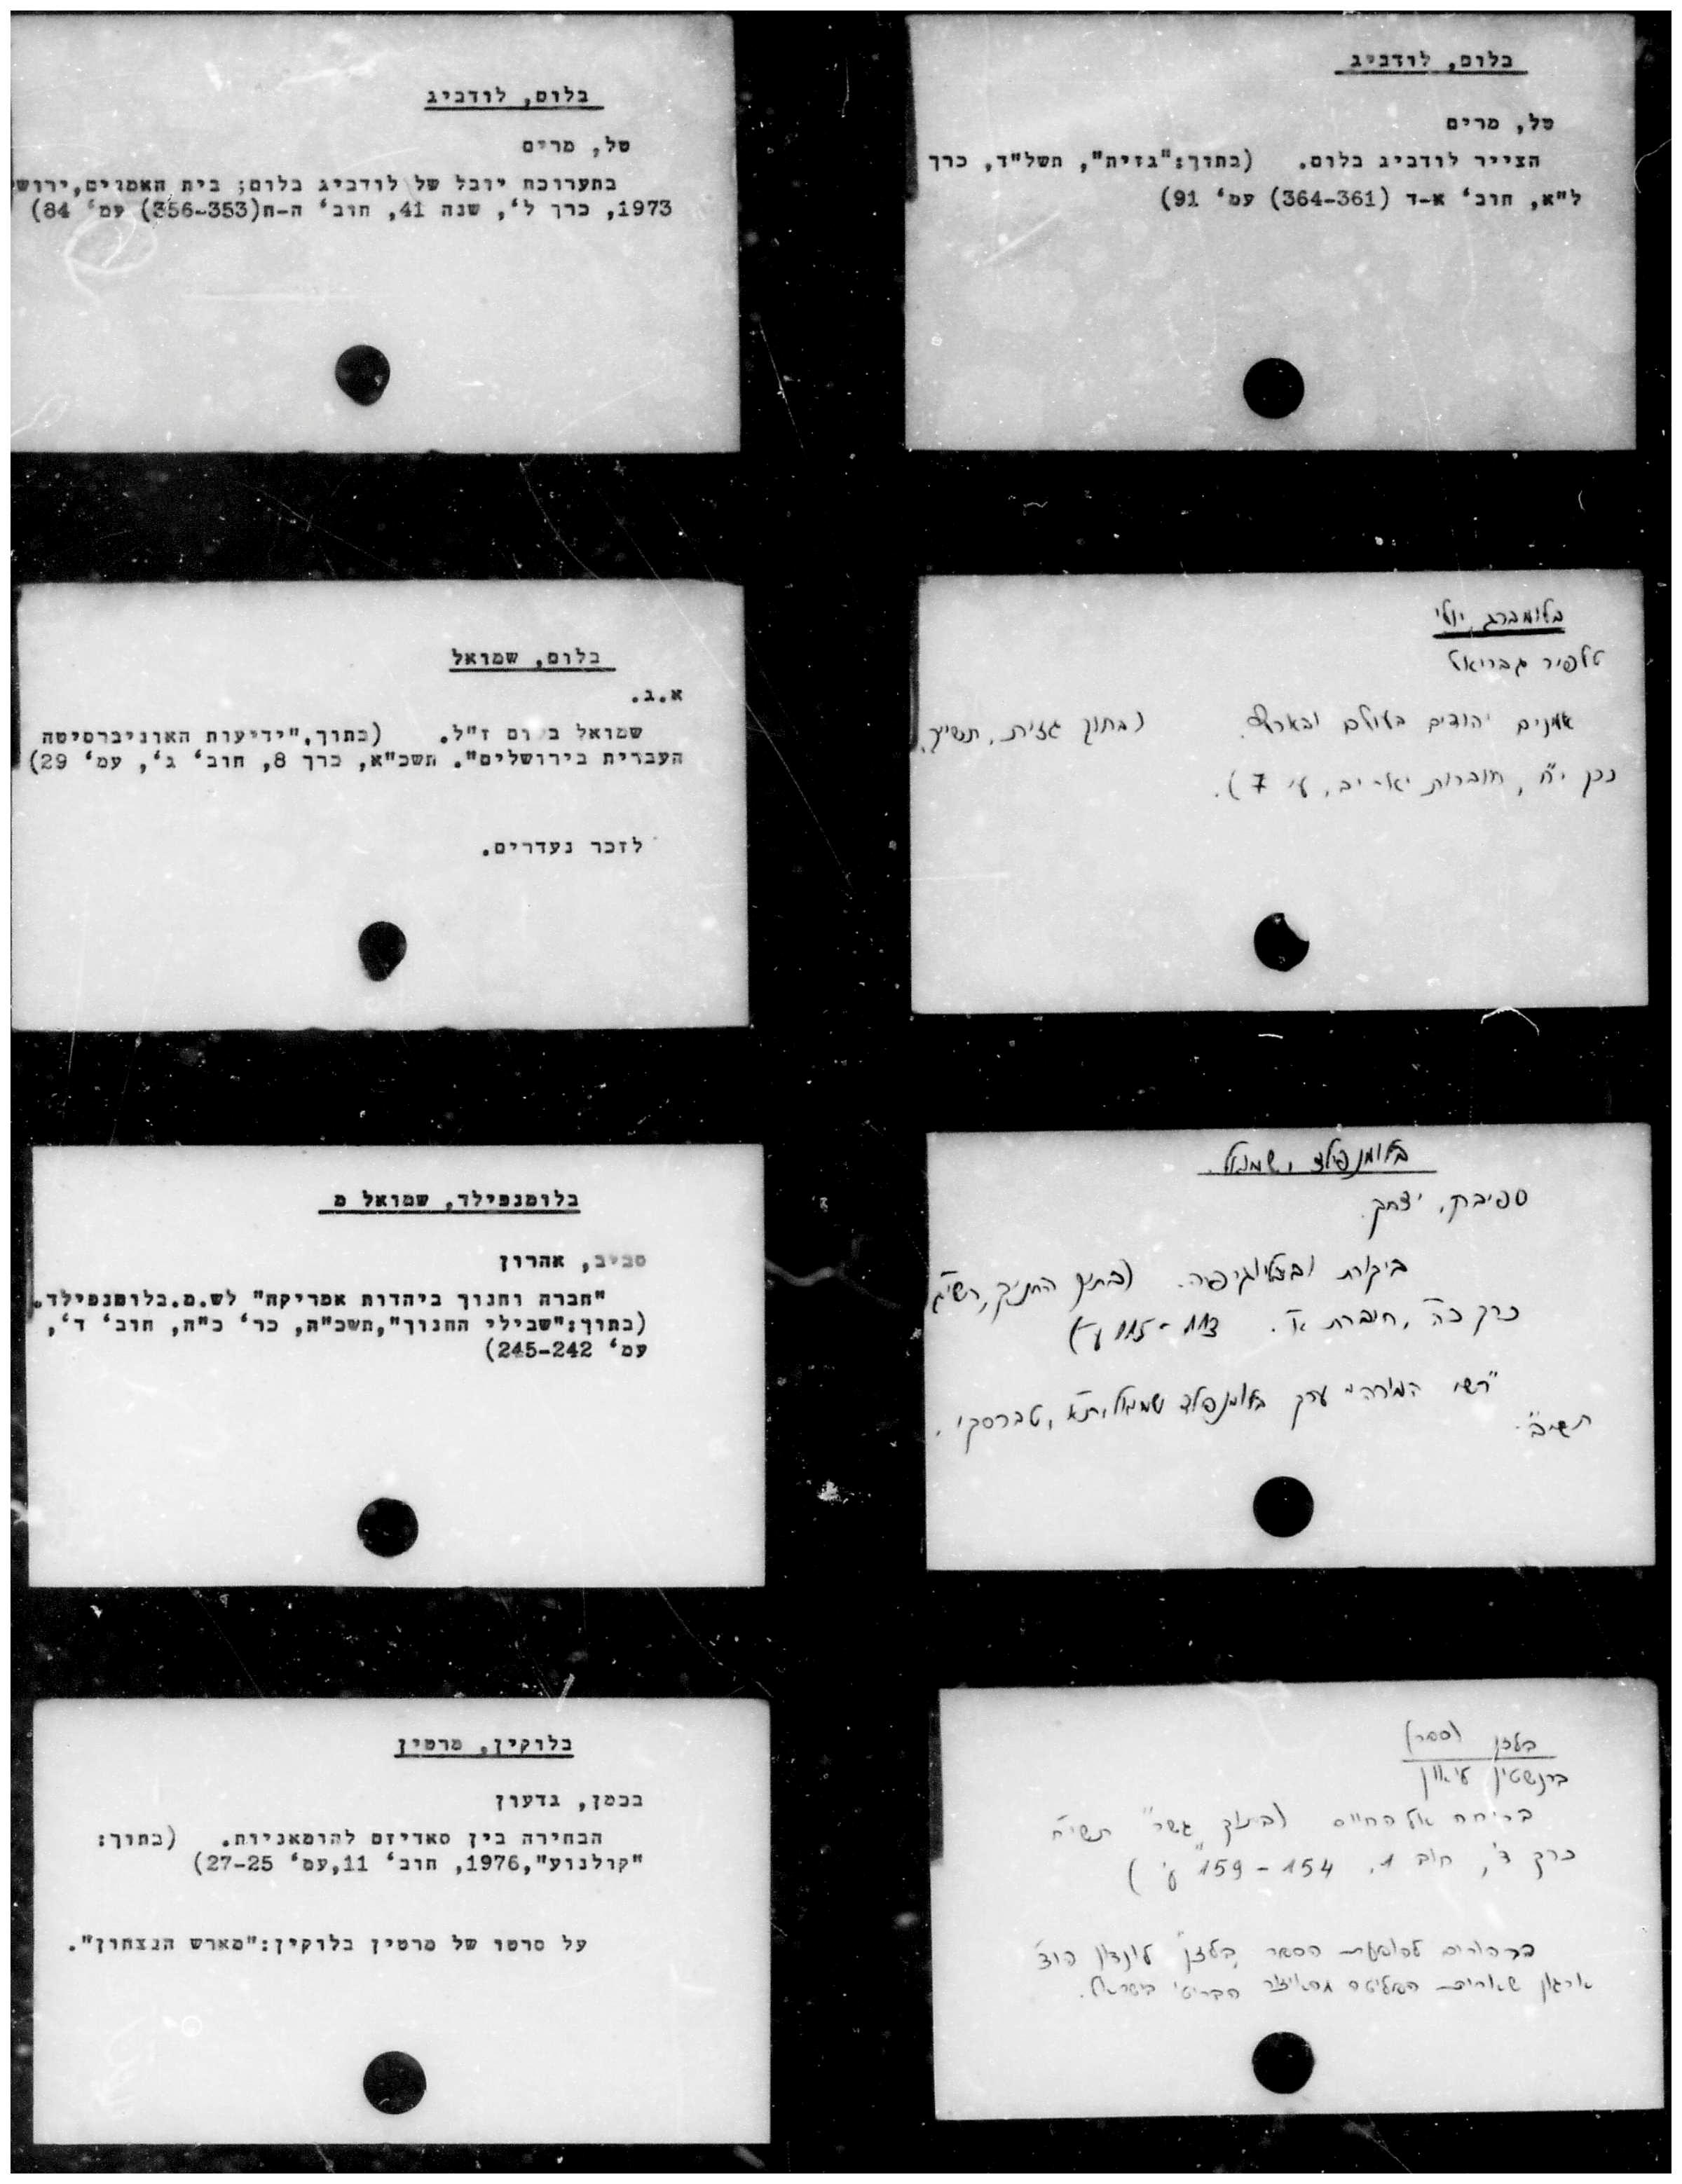 בלום, לודביג
טל, מרים
הצייר לודביג בלום. (בתוך:"גזית", תשל"ד, כרך
ל"א, חוב' א-ד (364-361) עמ' 91)
בלום, לודביג
טל, מרים
בתערוכת יובל של לודביג בלום; בית האמנים,ירוש
1973, כרך ל', שנה 41, חוב' ה-ח(356-353) עמ' 84)
בלומברג, יולי
טלפיר גבריאל
אמנים יהודים בעולם ובארץ. (בתוך גזית, תשי"ך,
כרך י"ח, חוברות יא-יב, עי 7).
בלום, שמואל
א.ג.
שמואל ב ום ז"ל. (בתוך,"ידיעות האוניברסיטה
העברית בירושלים". תשכ"א, כרך 8, חוב' ג', עמ' 29)
לזכר נעדרים.
בלומנפילד, שמואל.
ספיבק, יצחק.
ביקורת וביבליוגרפיה. (בתוך החנוך, תשי"ג
כרך כה, חוברת א. 113-115 ע')
תשי"ב.
בלומנפילד, שמואל מ
סביב, אהרון
"חברה וחנוך ביהדות אמריקה" לש.מ.בלומנפילד.
(בתוך:"שבילי החנוך",תשכ"ה, כר' כ"ה, חוב' ד',
עמ' 245-242)
בלזן (ספר)
ברנשטין ציאון
בריחה אל החיים (בתוך "גשר" תשי"ח
כרך ד', חוב 1, 154-159 ע')
הרהורים להופעת הספר בלזן לונדון הוצ'
ארגון שארית הפליטה מהאיזור הבריטי בישראל.
בלוקין, מרטין
בכמן, גדעון
הבחירה בין סאדיזם להומאניות. (בתוך:
"קולנוע",1976, חוב' 11,עמ' 27-25)
על סרטו של מרטין בלוקין:"מארש הנצחון".